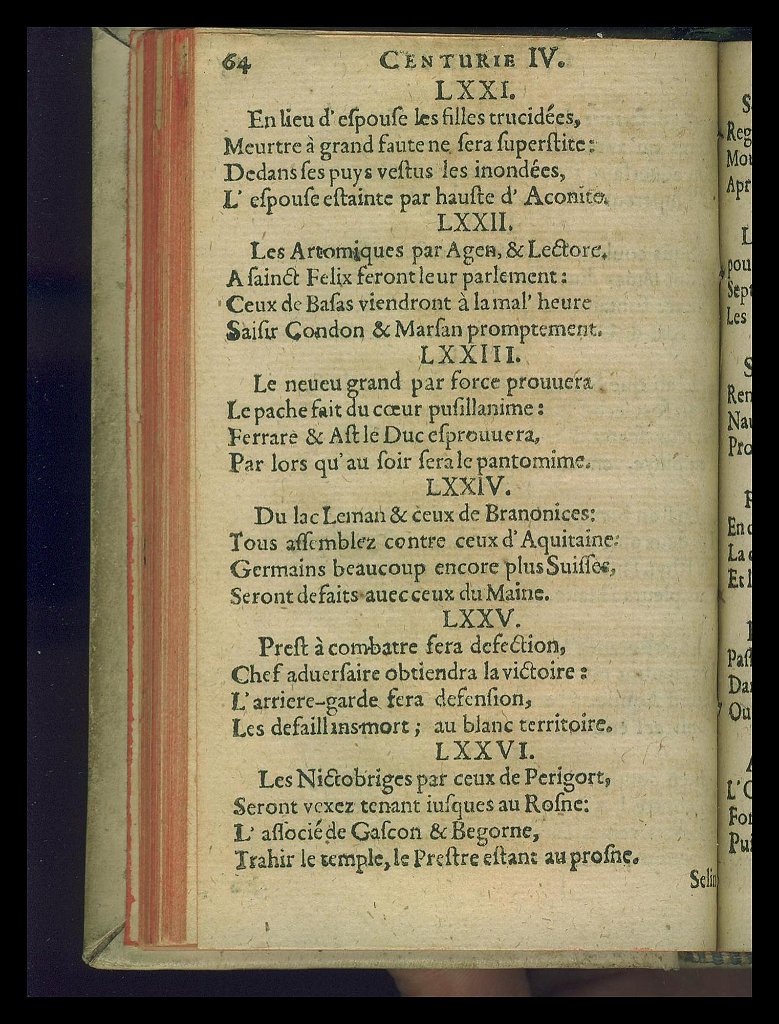 64 CENTURIE IV.
LXXI.
En lieu d' eſpouſe les filles trucidées,
Meurtre à grand faute ne ſera ſuperſtite:
Dedans ſes puys veſtus les inondées,
L' eſpouſe eſtainte par hauſte d' Aconito.
LXXII.
Les Artomiques par Agen, & Lectore,
A ſainct Felix feront leur parlement:
Ceux de Baſas viendront à la mal' heure
Saiſir Condon & Marſan promptement.
LXXIII.
Le neueu grand par force prouuera
Le pache fait du cœur puſillanime:
Ferrare & Aſt le Duc eſprouuera,
Par lors qu'au ſoir ſera le pantomime.
LXXIV.
Du lac Leman & ceux de Branonices:
Tous aſſemblez contre ceux d'Aquitaine:
Germains beaucoup encore plus Suiſſes,
Seront defaits auec ceux du Maine.
LXXV.
Preſt à combatre fera defection,
Chef aduerſaire obtiendra la victoire:
L'arriere-garde fera defenſion,
Les defaillans mort; au blanc territoire.
LXXVI.
Les Nictobriges par ceux de Perigort,
Seront vexez tenant iuſques au Roſne:
L' aſſocié de Gaſcon & Begorne,
Trahir le temple, le Preſtre eſtant au proſne.
Selin
Reg
Mou
Apr
L
pou
Sept
Les
Ren
Nau
Pro
En
La
Et l
Paſſ
Dan
Ou
L'O
For
Pui